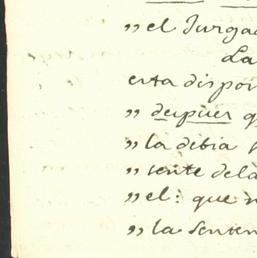 „ el Jurga
La
esta dispo
„ despues q
„ la debia
„ sente dela
„ el: que n
„ la senten